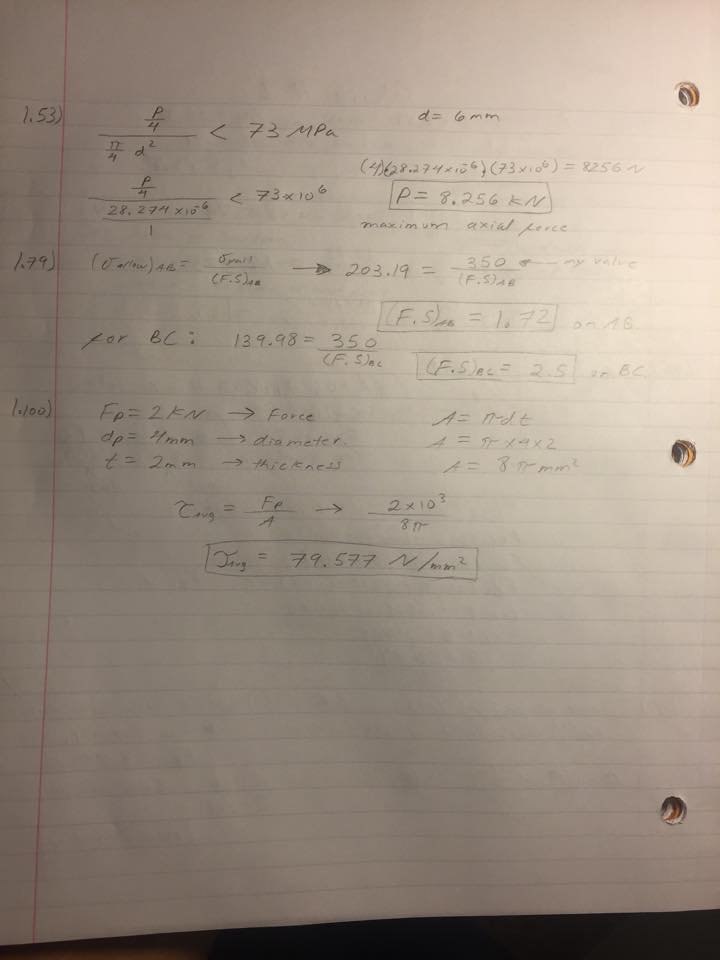 1.53) (P/4)/(π/4 d²) < 73 MPa d = 6mm
(4)(28.274×10⁻⁶)(73×10⁶) = 8256 N
(P/4)/(28.274×10⁻⁶/1) < 73×10⁶ P = 8.256 kN
maximum axial force
1.79) (σallow)AB = σfail/(F.S)AB → 203.19 = 350/(F.S)AB ← my value
(F.S)AB = 1.72 on AB
for BC: 139.98 = 350/(F.S)BC (F.S)BC = 2.5 on BC
1.100) Fp = 2KN → Force A = πdt
dp = 4mm → diameter. A = π×4×2
t = 2mm → thickness A = 8π mm²
τavg = Fp/A → 2×10³/8π
τavg = 79.577 N/mm²